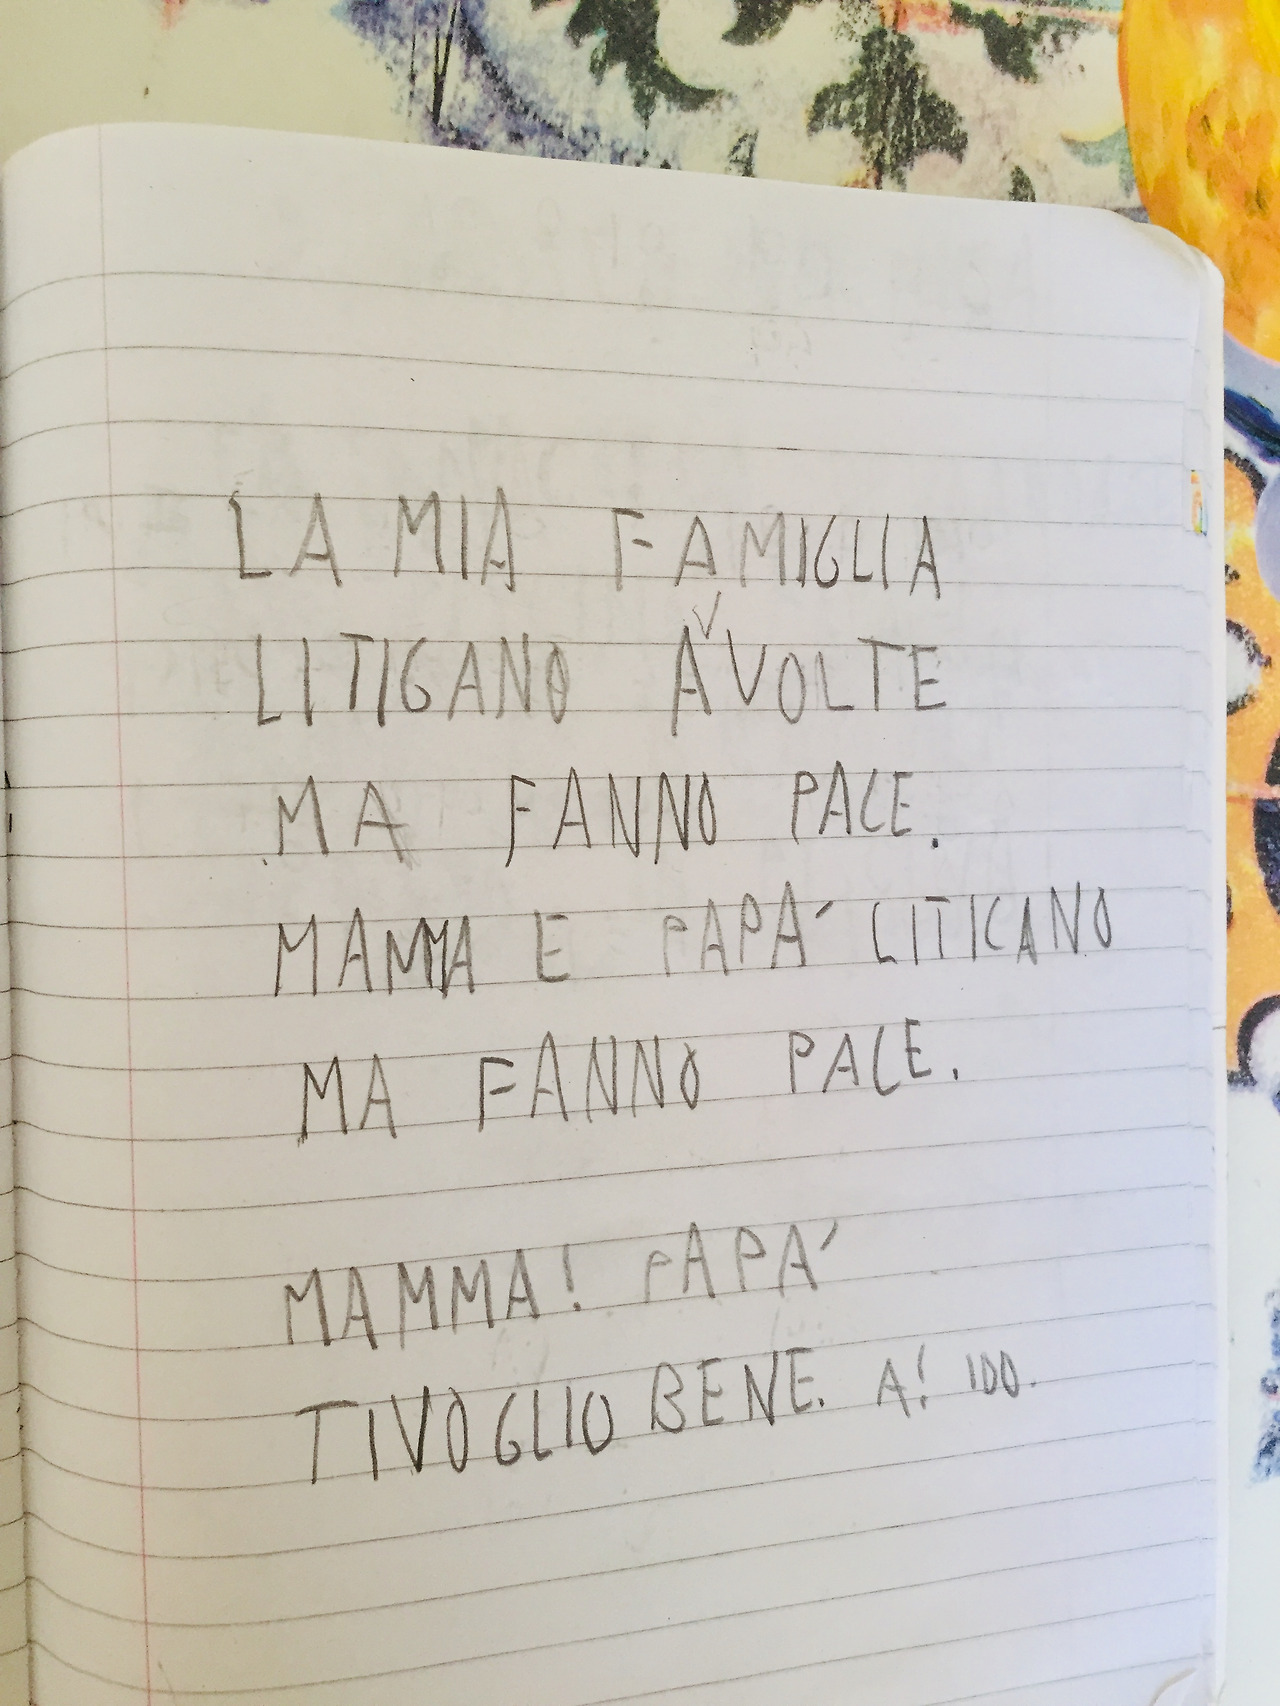 LA MIA FAMIGLIA
LITIGANO AVOLTE
MA FANNO PACE.
MAMMA E PAPA´ LITICANO
MA FANNO PACE.
MAMMA! PAPA´
TIVOGLIO BENE. A! 100.